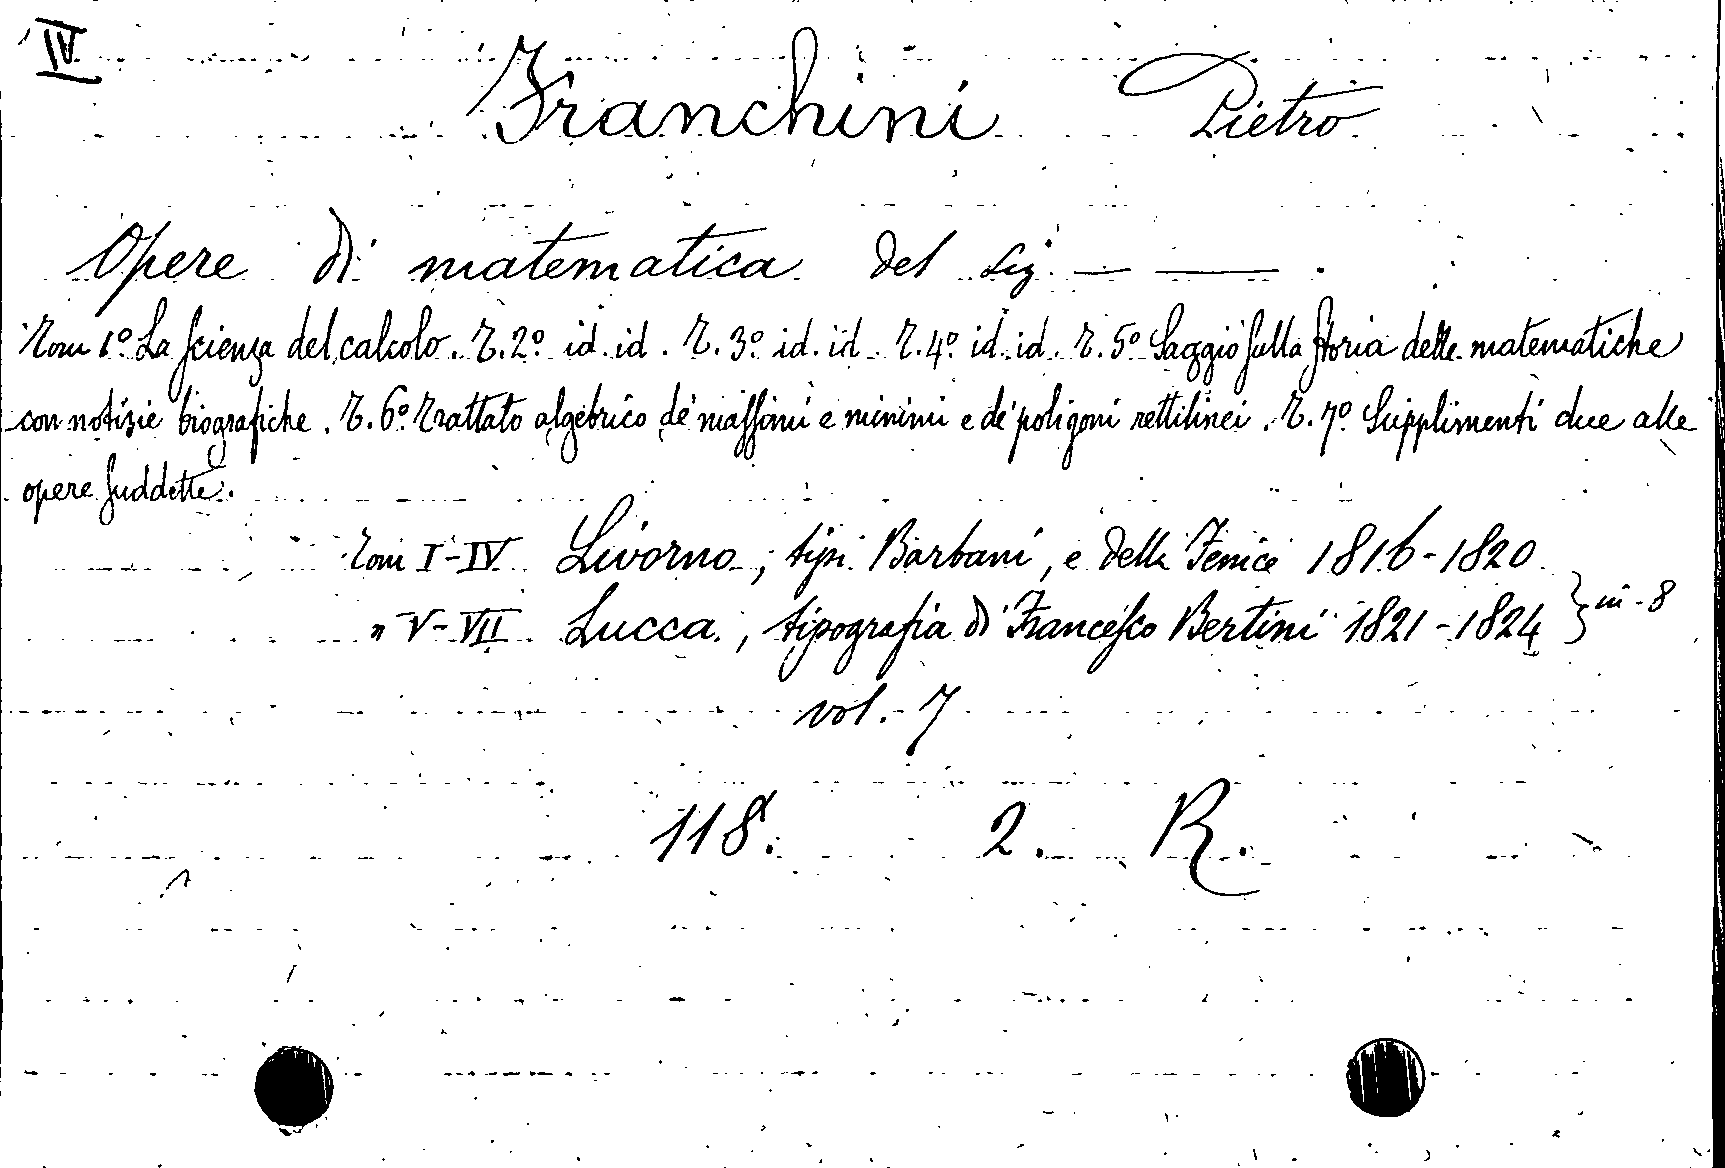 IV
Franchini Pietro
Opere di matematica del sig. — —.
Tom 1º La scienza del calcolo. T. 2º id. id. T. 3º id. id. T. 4º id. id. T. 5º Saggio sulla storia delle matematiche
con notizie biografiche. T. 6º Trattato algebrico de' massimi e minimi e de' poligoni rettilinei. T. 7º Supplimenti due alle
opere suddette.
Tomi I-IV Livorno, tipi Barbani, e della Fenice 1816-1820
" V-VII Lucca, tipografia di Francesco Bertini 1821-1824 } in-8
vol. 7
118. 2. R.